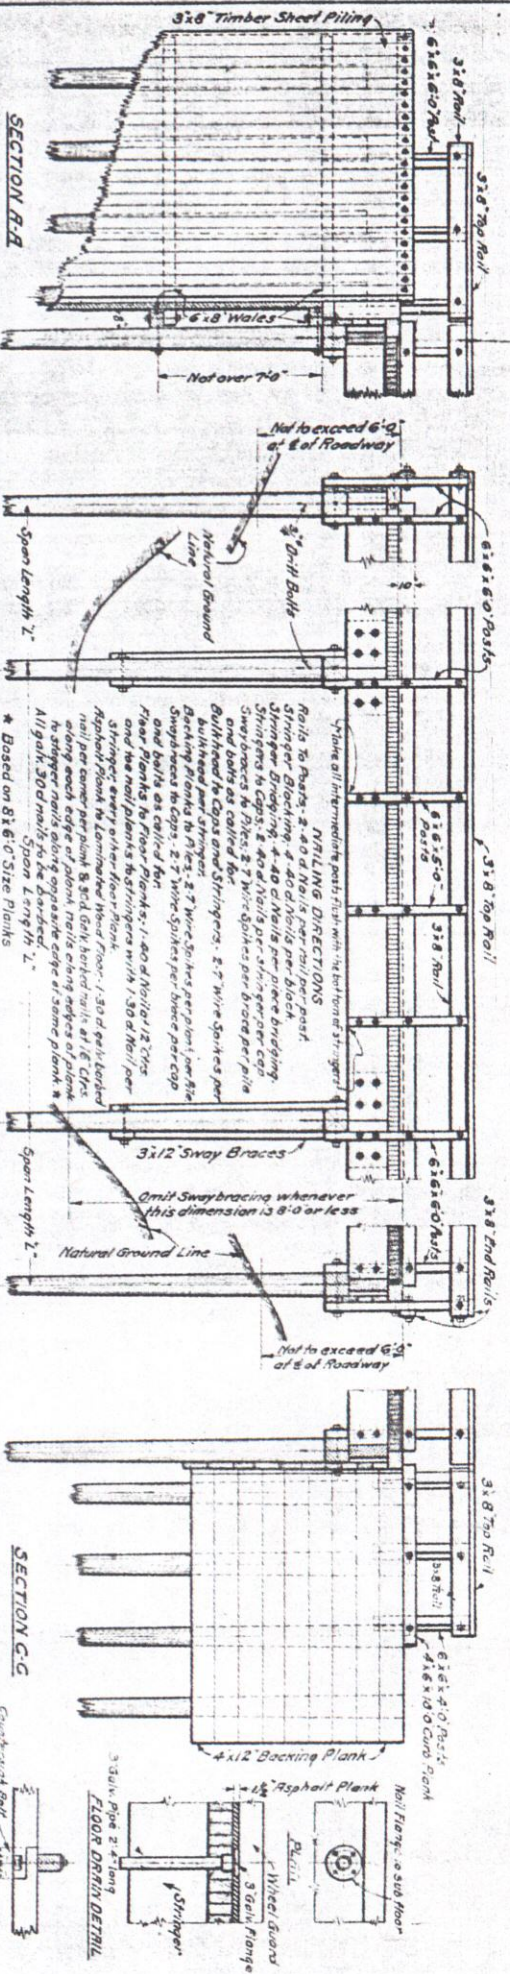 3"x8" Timber Sheet Piling
6"x6"x6'-0" Post
3"x8" Rail
3"x8" Top Rail
6"x8" Wales
Not over 7'-0"
SECTION A-A
Not to exceed 6'-0"
at ℄ of Roadway
6"x6"x6'-0" Posts
10"
Drift Bolts
Natural Ground
Line
Span Length "L"
3"x8" Top Rail
6"x6"x5'-0"
Posts
3"x8" Rail
Make all intermediate posts flush with the bottom of stringers
NAILING DIRECTIONS
Rails to Posts, 2-40d Nails per rail per post.
Stringer Blocking, 4-40d Nails per block.
Stringer Bridging, 4-40d Nails per piece bridging.
Stringers to Caps, 2-40d Nails per stringer per cap
Sway braces to Piles, 2-7" Wire Spikes per brace per pile
and bolts as called for.
Bulkhead to Caps and Stringers, 2-7" Wire Spikes per
bulkhead per stringer.
Backing Planks to Piles, 2-7" Wire Spikes per plank per pile
Sway braces to Caps, 2-7" Wire Spikes per brace per cap
and bolts as called for.
Floor Planks to Floor Planks, 1-40d Nail at 12" Ctrs
and toe nail planks to stringers with 1-30d Nail per
stringer every other floor plank.
Asphalt Plank to Laminated Wood Floor, 1-30d galv. barbed
nail per corner per plank & 30d Galv. barbed nails at 16" Ctrs.
along each edge of plank, nails along edges of plank
to stagger nails along opposite edge of same plank *
All galv. 30d nails to be barbed.
Span Length "L"
* Based on 8"x6'-0" Size Planks
3"x12" Sway Braces
Omit Swaybracing whenever
this dimension is 8'-0" or less
Natural Ground Line
Span Length "L"
6"x6"x6'-0" Posts
3"x8" End Rails
Not to exceed 6'-0"
at ℄ of Roadway
3"x8" Top Rail
3"x8" Rail
6"x6"x4'-0" Posts
4"x6"x10'-0" Curb Plank
4"x12" Backing Plank
SECTION C-C
Nail Flange to sub floor
PLAN
1½" Asphalt Plank
Wheel Guard
3" Galv. Flange
Stringer
3" Galv. Pipe 2'-4" long
FLOOR DRAIN DETAIL
Countersunk Bolt